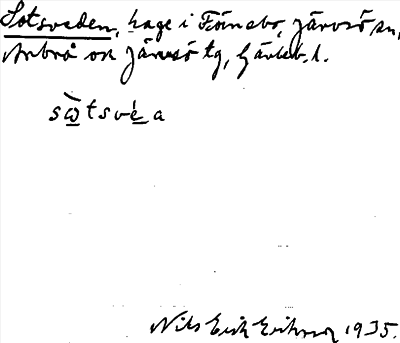 Sotsveden, hage i Föinebo, Järvsö sn,
Arbrå ok Järvsö tg, Gävleb. l.
sὼ̲tsvé̲a
Nils Erik Eriksson 1935.